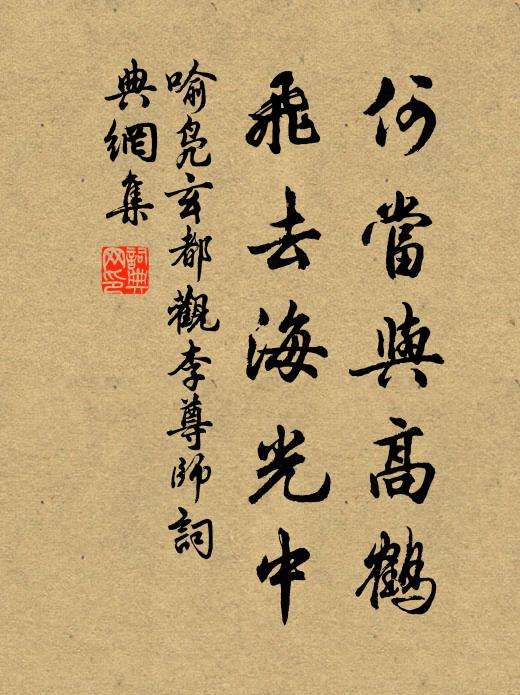 何當與高鶴
飛去海光中
喻鳧玄都觀李尊師詞
典網集
詞典
网印